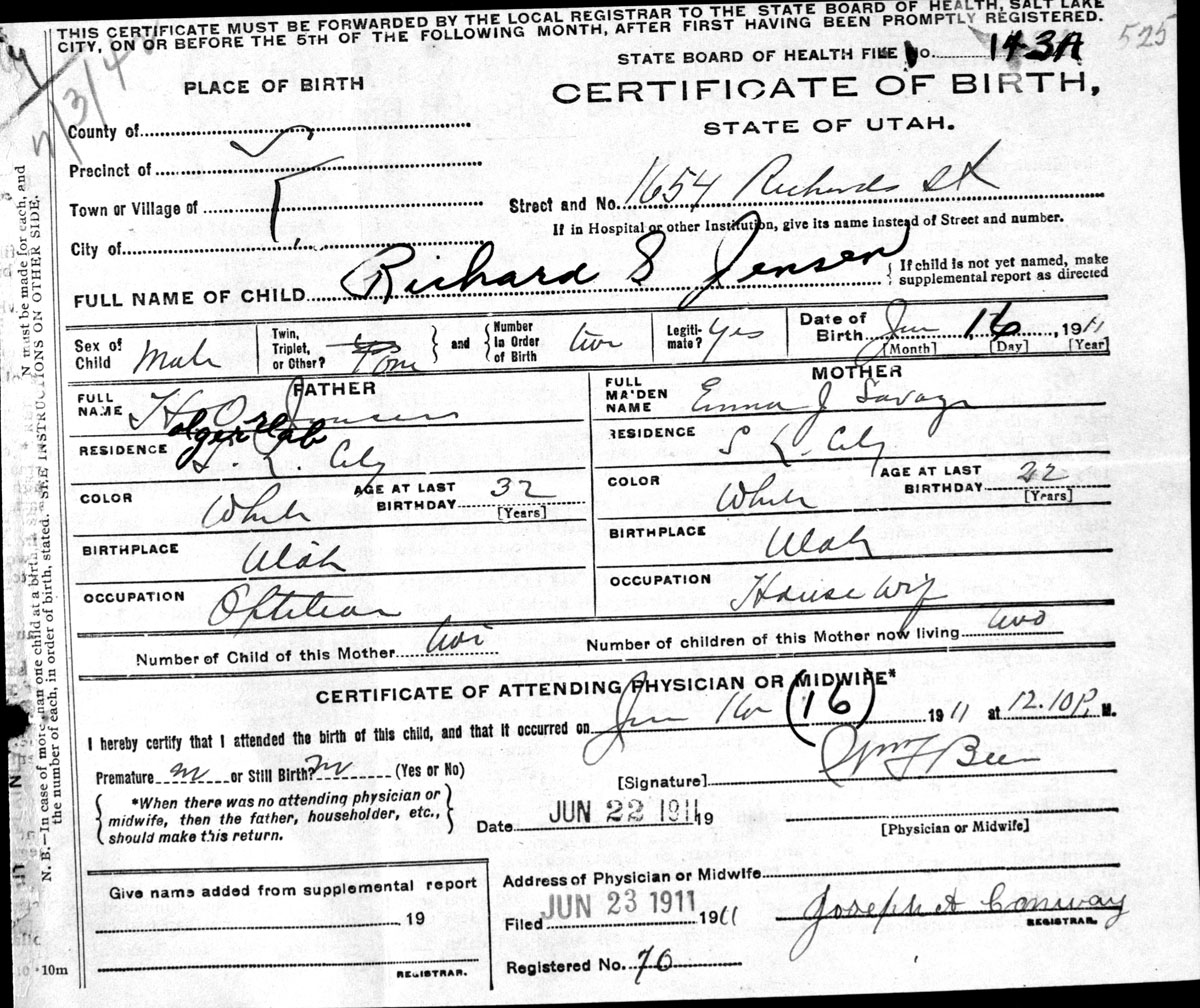 THIS CERTIFICATE MUST BE FORWARDED BY THE LOCAL REGISTRAR TO THE STATE BOARD OF HEALTH, SALT LAKE
CITY, ON OR BEFORE THE 5TH OF THE FOLLOWING MONTH, AFTER FIRST HAVING BEEN PROMPTLY REGISTERED.
525
STATE BOARD OF HEALTH FILE No. 143A
PLACE OF BIRTH
CERTIFICATE OF BIRTH,
STATE OF UTAH.
County of
Precinct of
Town or Village of
Street and No. 1654 Richards St
If in Hospital or other Institution, give its name instead of Street and number.
City of
FULL NAME OF CHILD Richard S Jensen
{ If child is not yet named, make
supplemental report as directed
Sex of Child Male
Twin, Triplet, or Other?
and
Number in Order of Birth two
Legiti-mate? Yes
Date of Birth Jun 16, 1911
[Month] [Day] [Year]
FATHER
MOTHER
FULL NAME H O Jensen
Holger Olab
FULL MAIDEN NAME Emma J Savage
RESIDENCE S. L. City
RESIDENCE S L. City
COLOR White
AGE AT LAST BIRTHDAY 32
[Years]
COLOR White
AGE AT LAST BIRTHDAY 22
[Years]
BIRTHPLACE Utah
BIRTHPLACE Utah
OCCUPATION Optitian
OCCUPATION House Wife
Number of Child of this Mother two
Number of children of this Mother now living two
CERTIFICATE OF ATTENDING PHYSICIAN OR MIDWIFE*
I hereby certify that I attended the birth of this child, and that it occurred on Jun 16 (16) 1911 at 12.10 P. M.
Premature no or Still Birth? no (Yes or No)
[Signature]
{ *When there was no attending physician or
midwife, then the father, householder, etc., }
should make this return.
Date JUN 22 1911 19
[Physician or Midwife]
Give name added from supplemental report
19
REGISTRAR.
Address of Physician or Midwife
Filed JUN 23 1911 1911
Joseph A Conway
REGISTRAR.
Registered No. 76
10m
N. B.—In case of more than one child at a birth, N must be made for each, and
the number of each, in order of birth, stated. SEE INSTRUCTIONS ON OTHER SIDE.